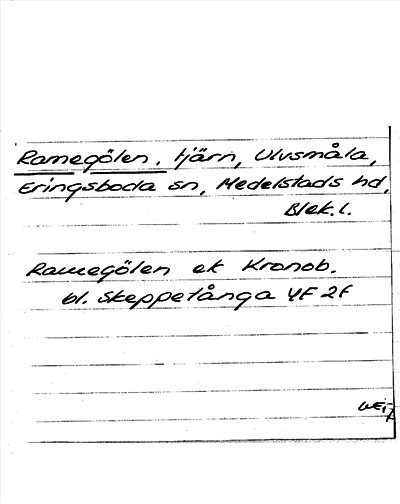 Ramegölen, tjärn, Ulvsmåla,
Eringsboda sn, Medelstads hd,
Blek.l.
Ramegölen ek Kronob.
bl. Skeppetånga 4F 2f